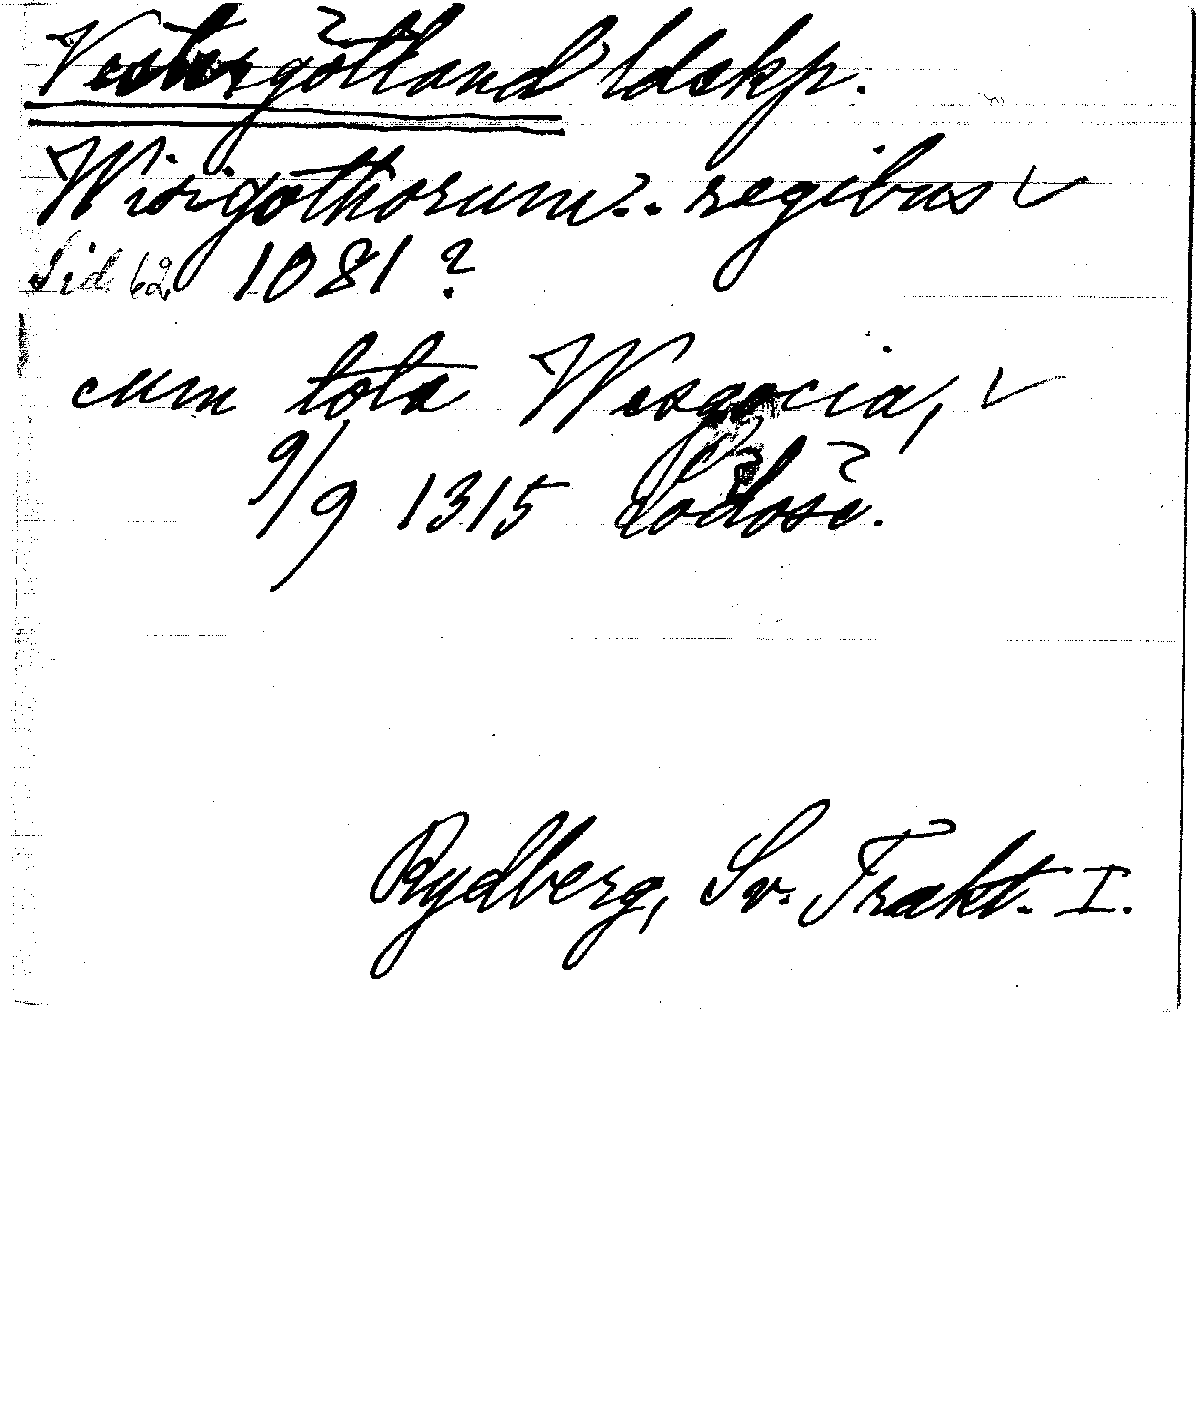 Vestergötland ldskp.
Wisigothorum.. regibus ✓
Sid 62 1081?
cum tota Wesgocia, ✓
9/9 1315 Lödöse.
Rydberg, Sv. Trakt. I.